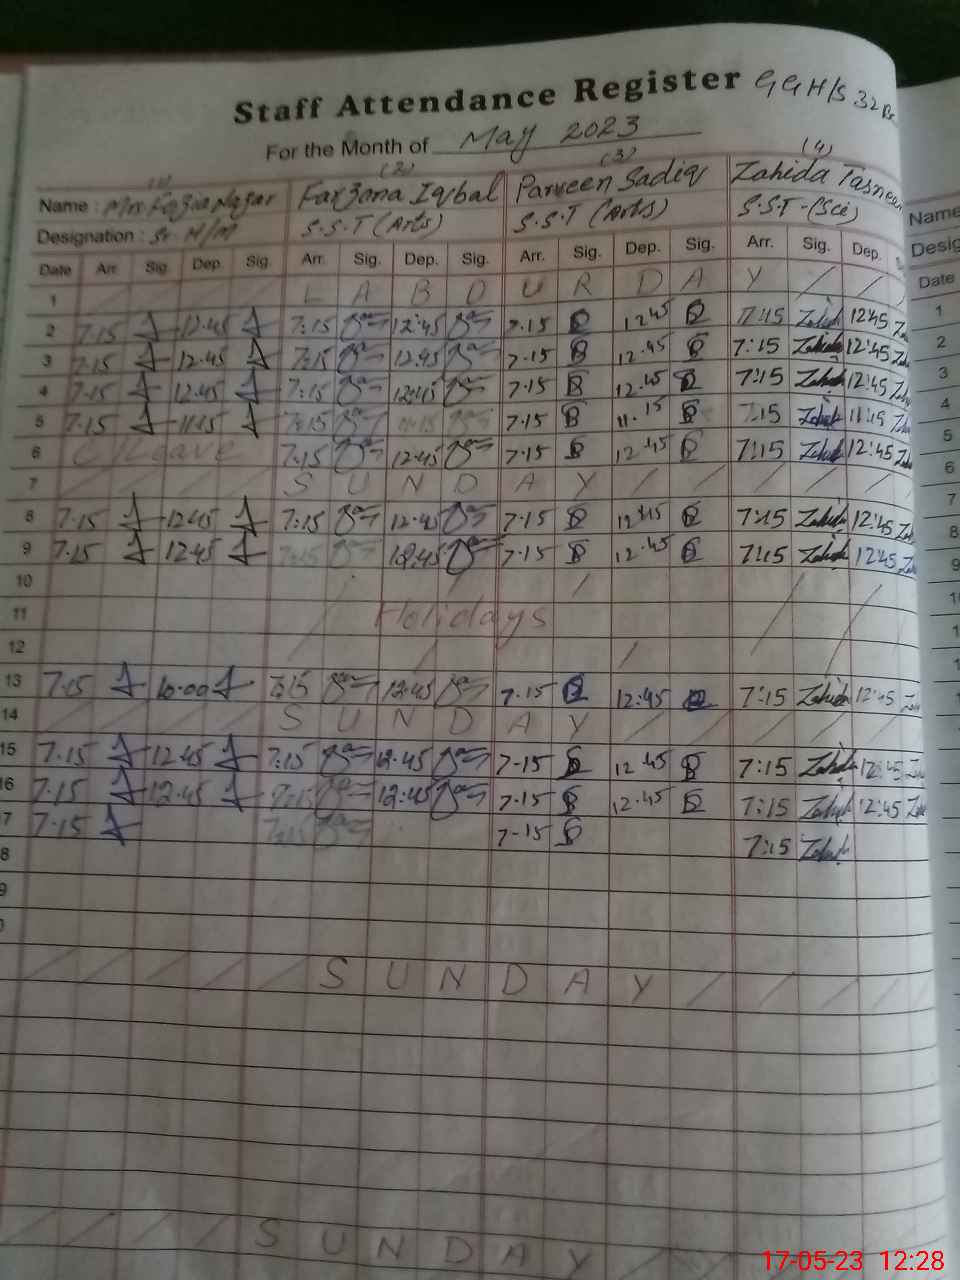 Staff Attendance Register GGH/S 32
For the Month of May 2023
(1) (2) (3) (4)
Name : Mrs Fozia Farzana Iqbal Parveen Sadiq Zahida Tasneem Name
Designation : Sr. H/M S.S.T (Arts) S.S.T (Arts) S.S.T-(Sci) Desig
Date Arr. Sig. Dep. Sig. Arr. Sig. Dep. Sig. Arr. Sig. Dep. Sig. Arr. Sig. Dep. Date
1 L A B O U R D A Y 1
2 7.15 12.45 7:15 12:45 7.15 12 45 7:15 Zahida 12:45 2
3 7.15 12.45 7:15 12.45 7.15 12.45 7:15 Zahida 12:45 3
4 7.15 12.45 7:15 12:45 7.15 12.45 7:15 Zahida 12:45 4
5 7.15 11.15 7:15 11.15 7.15 11.15 7:15 Zahida 11:15 5
6 C/Leave 7:15 12:45 7.15 12.45 7:15 Zahida 12:45 6
7 S U N D A Y 7
8 7.15 12.45 7:15 12.45 7.15 12.45 7:15 Zahida 12:45 8
9 7.15 12.45 7:15 12:45 7.15 12.45 7:15 Zahida 12:45 9
10
11 Holidays
12
13 7.15 10.00 7:15 12.45 7.15 12.45 7:15 Zahida 12:45
14 S U N D A Y
15 7.15 12.45 7:15 12.45 7.15 12.45 7:15 Zahida 12:45
16 7.15 12.45 7:15 12:45 7.15 12.45 7:15 Zahida 12:45
7 7.15 7:15 7.15 7:15 Zahida
8
9
S U N D A Y
S U N D A Y
17-05-23 12:28